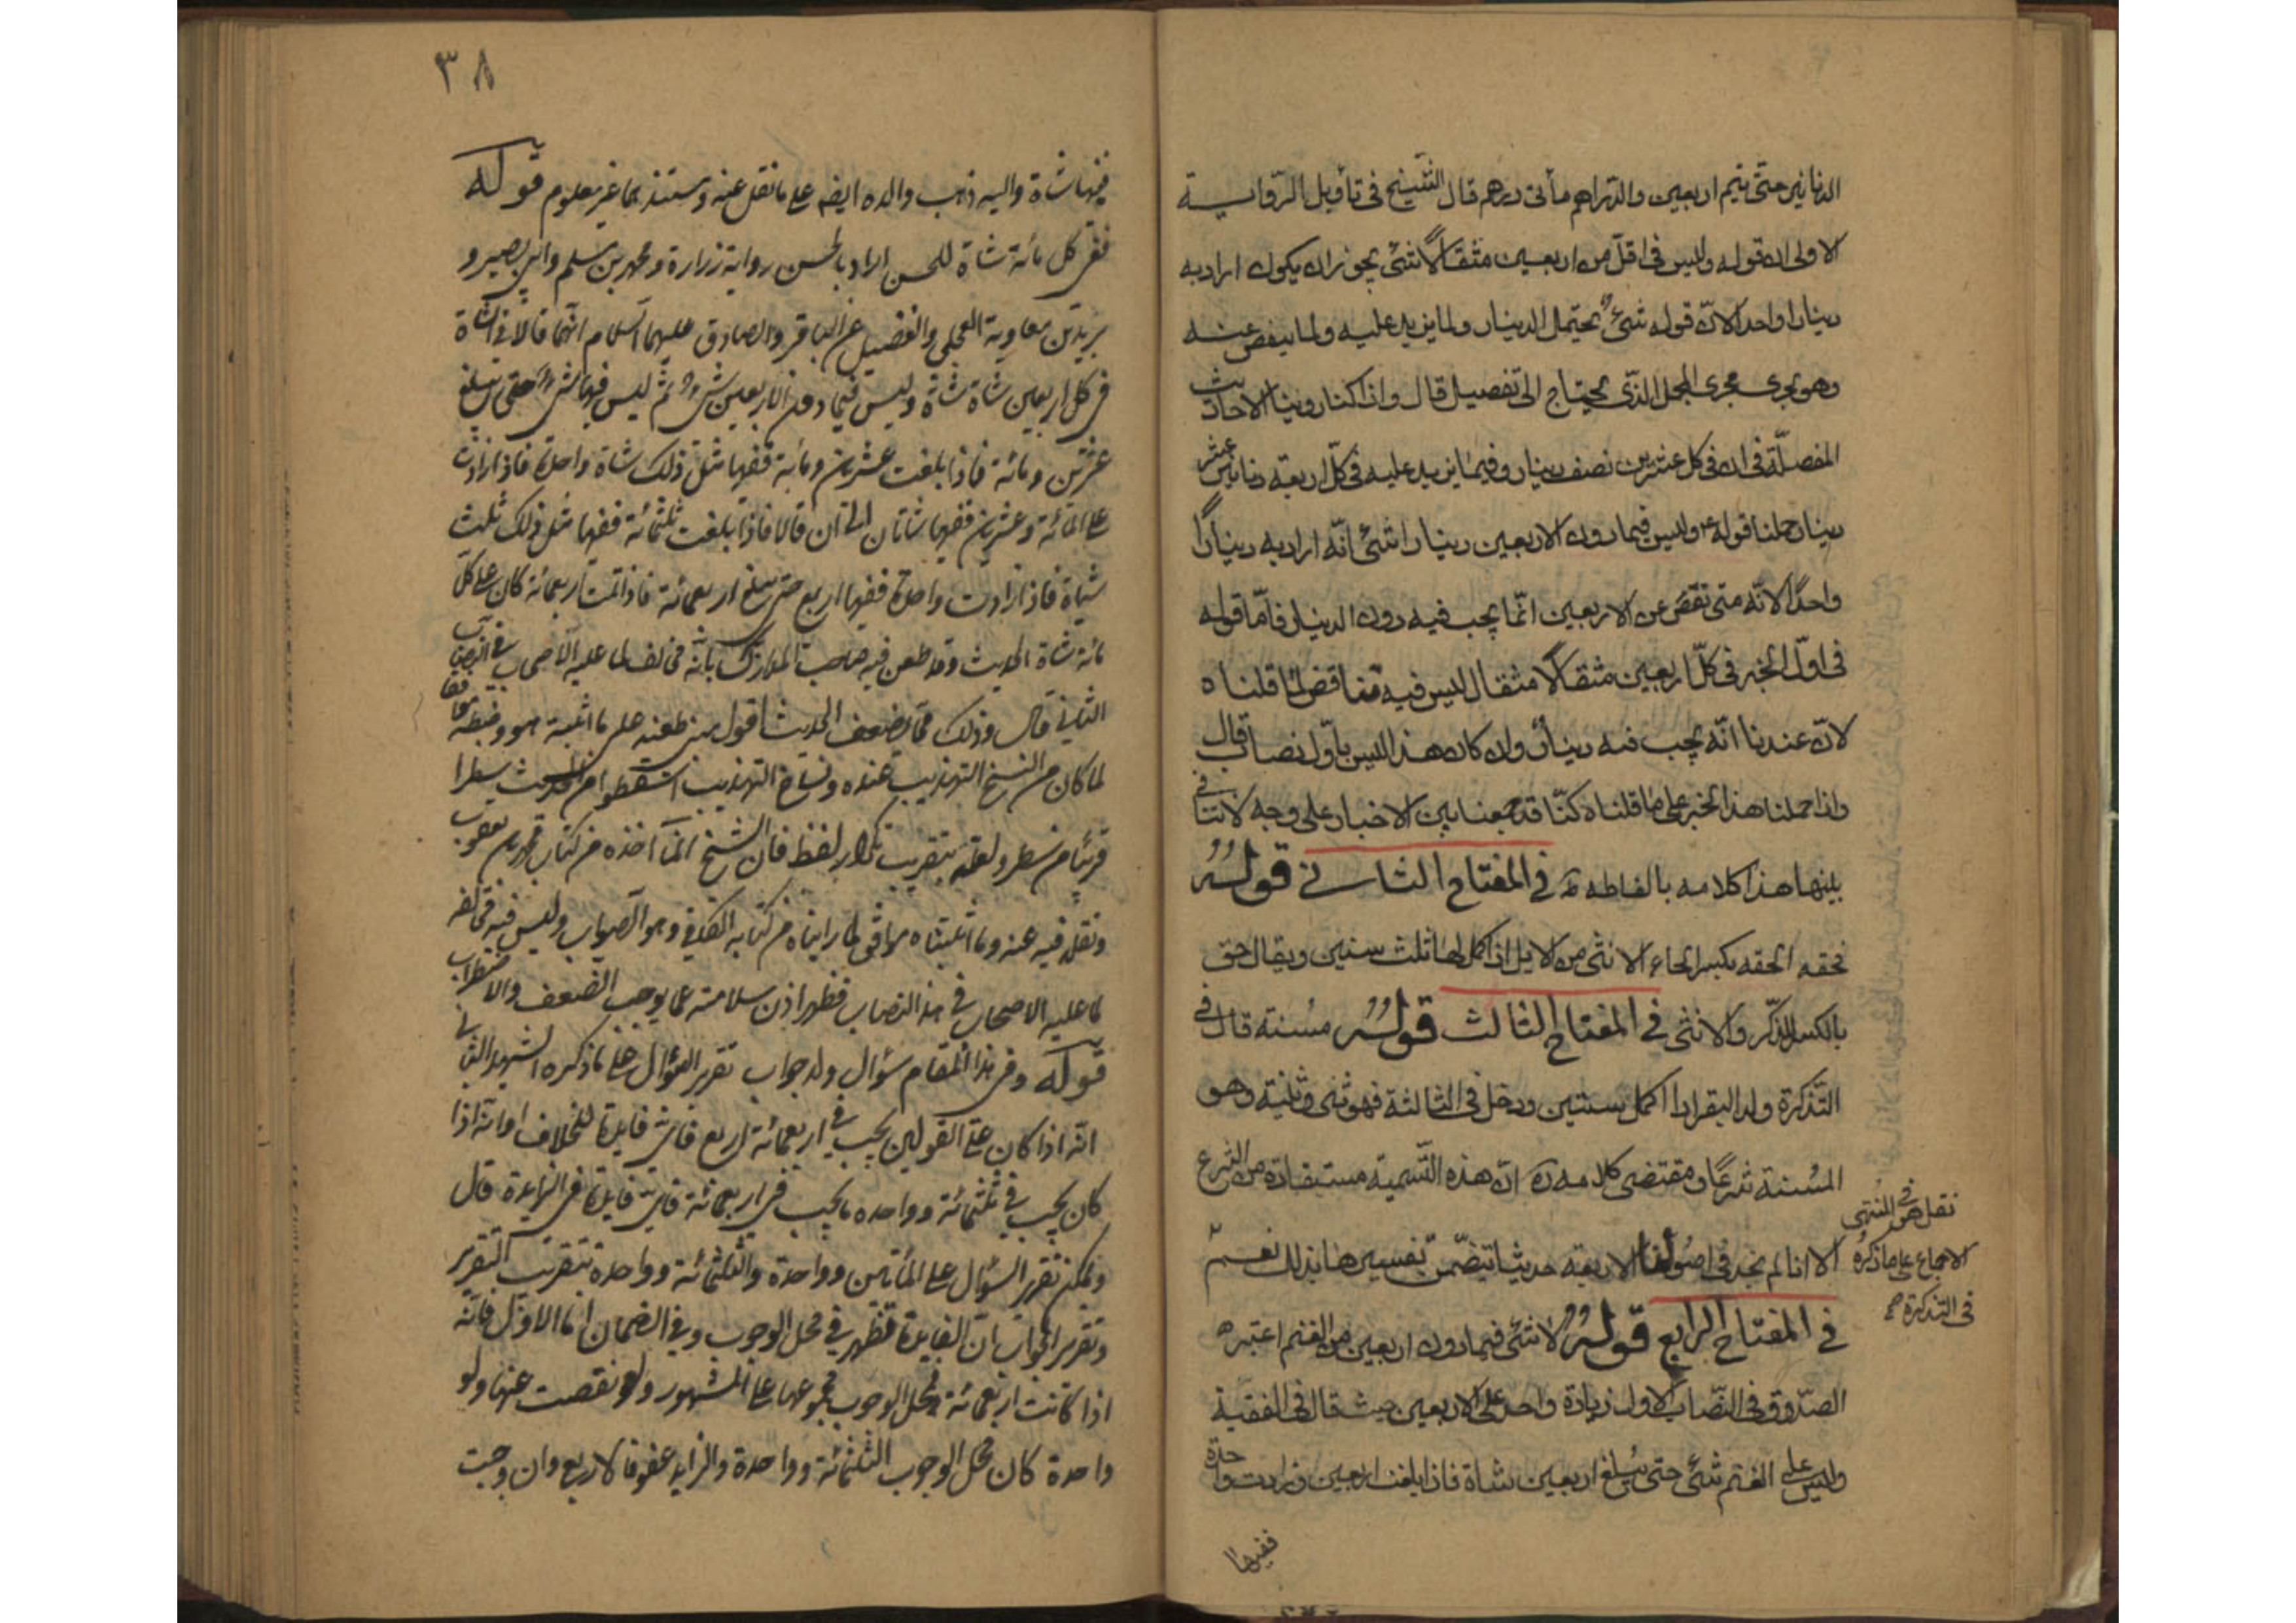 الدنانير حتى يتم اربعين والدراهم مأتى درهم قال الشيخ فى تأويل الرواية
الاولى ان قوله وليس فى اقل من اربعين مثقالا شئ يجوز ان يكون اراد به
دينارا واحدا لان قوله شئ يحتمل الدينار ولما يزيد عليه ولما ينقص عنه
وهو يجرى مجرى المجمل الذى يحتاج الى تفصيل قال واذا كنا روينا الاحاديث
المفصلة فى ان فى كل عشرين نصف دينار وفيما يزيد عليه فى كل اربعة دنانير عشر
دينار حملنا قوله ع وليس فيما دون الاربعين دينارا شئ انه اراد به دينارا
واحدا لانه متى نقص عن الاربعين انما يجب فيه دون الدينار فاما قوله
فى اول الخبر فى كل اربعين مثقالا مثقال ليس فيه تناقض لما قلناه
لان عندنا انه يجب فيه دينار وان كان هذا ليس باول نصاب قال
واذا حملنا هذا الخبر على ما قلناه كنا قد جمعنا بين الاخبار على وجه لا تنافى
بينها هذا كلامه بالفاظه ره فى المفتاح الثانى قوله
فحقه الحقه بكسر الحاء الانثى من الابل اذا كمل لها ثلث سنين ويقال حق
بالكسر للذكر والانثى فى المفتاح الثالث قوله مسنة قال فى
التذكرة ولد البقر اذا كمل سنتين ودخل فى الثالثة فهو ثنى وثنية وهو
المسنة شرعا ومقتضى كلامه ره ان هذه التسمية مستفادة من الشرع
الا انا لم نجد فى اصولنا الاربعة حديثا تتضمن تفسيرها بذلك نعم
نقل فى المنتهى
الاجماع على ما ذكره
فى التذكرة
فى المفتاح الرابع قوله لا شئ فيما دون اربعين من الغنم اعتبر
الصدوق فى النصاب الاول زيادة واحد على الاربعين حيث قال فى الفقيه
وليس على الغنم شئ حتى يبلغ اربعين شاة فاذا بلغت اربعين وزادت واحدة
ففيها
٣٨
ففيها شاة واليه ذهب والده ايضا على ما نقل عنه ومستندهما غير معلوم قوله
ففى كل مائة شاة للحسن المراد بالحسن رواية زرارة ومحمد بن مسلم وابى بصير و
بريد بن معاوية العجلى والفضيل عن الباقر والصادق عليهما السلام انهما قالا فى الشاة
فى كل اربعين شاة شاة وليس فيما دون الاربعين شئ ثم ليس فيها شئ حتى تبلغ
عشرين ومائة فاذا بلغت عشرين ومائة ففيها مثل ذلك شاة واحدة فاذا زادت
على المائة وعشرين ففيها شاتان الى ان قالا فاذا بلغت ثلثمائة ففيها مثل ذلك ثلث
شياة فاذا زادت واحدة ففيها اربع حتى تبلغ اربعمائة فاذا تمت اربعمائة كان على كل
مائة شاة الحديث وقد طعن فيه صاحب المدارك بانه مخالف لما عليه الاصحاب فى النصاب
الثانى قال وذلك مما يضعف الحديث اقول مبنى طعنه على ما اثبته هو وضبطه موافقا
لما كان من النسخ التهذيب عنده ونساخ التهذيب اسقطوا من الحديث سطرا
قريبا من سطر ولعله بتقريب تكرار لفظ فان الشيخ انما اخذه من كتاب محمد بن يعقوب
ونقله فيه عنه وما اثبتناه موافق لما رايناه من كتابه الكافى وهو الصواب وليس فيه مخالفة
لما عليه الاصحاب فى هذا النصاب فظهر اذن سلامته عما يوجب الضعف والاضطراب
قوله وفى هذا المقام سؤال وله جواب تقرير السؤال على ما ذكره الشهيد الثانى
انه اذا كان على القولين يجب فى اربعمائة اربع فاى فايدة للخلاف او انه اذا
كان يجب فى ثلثمائة وواحده ما يجب فى اربعمائة فاى فايدة فى الزايدة قال
ويمكن تقرير السؤال على المأتين وواحدة والثلثمائة وواحدة بتقريب التقرير
وتقرير الجواب ان الفايدة تظهر فى محل الوجوب وفى الضمان اما الاول فانه
اذا كانت اربعمائة فمحل الوجوب مجموعها على المشهور ولو نقصت عنها ولو
واحدة كان محل الوجوب الثلثمائة وواحدة والزايد عفو فالاربع وان وجبت